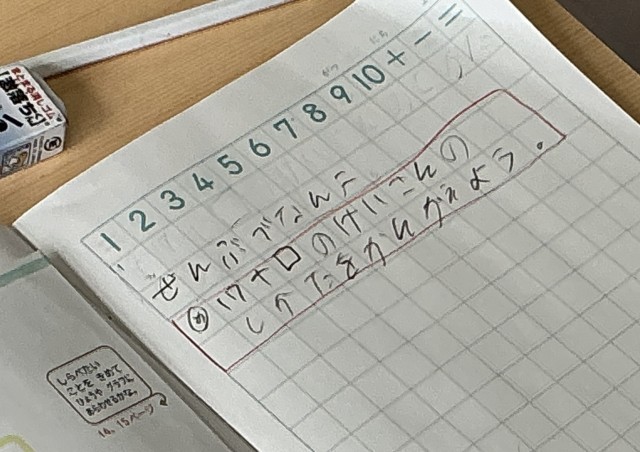 1 2 3 4 5 6 7 8 9 10 + - =
ぜんぶでなんこ
め 17+□のけいさんの
しかたをかんがえよう。
しらべたい
ことを きめて
ひょうや グラフに
あらわせるかな。
14、15ページ